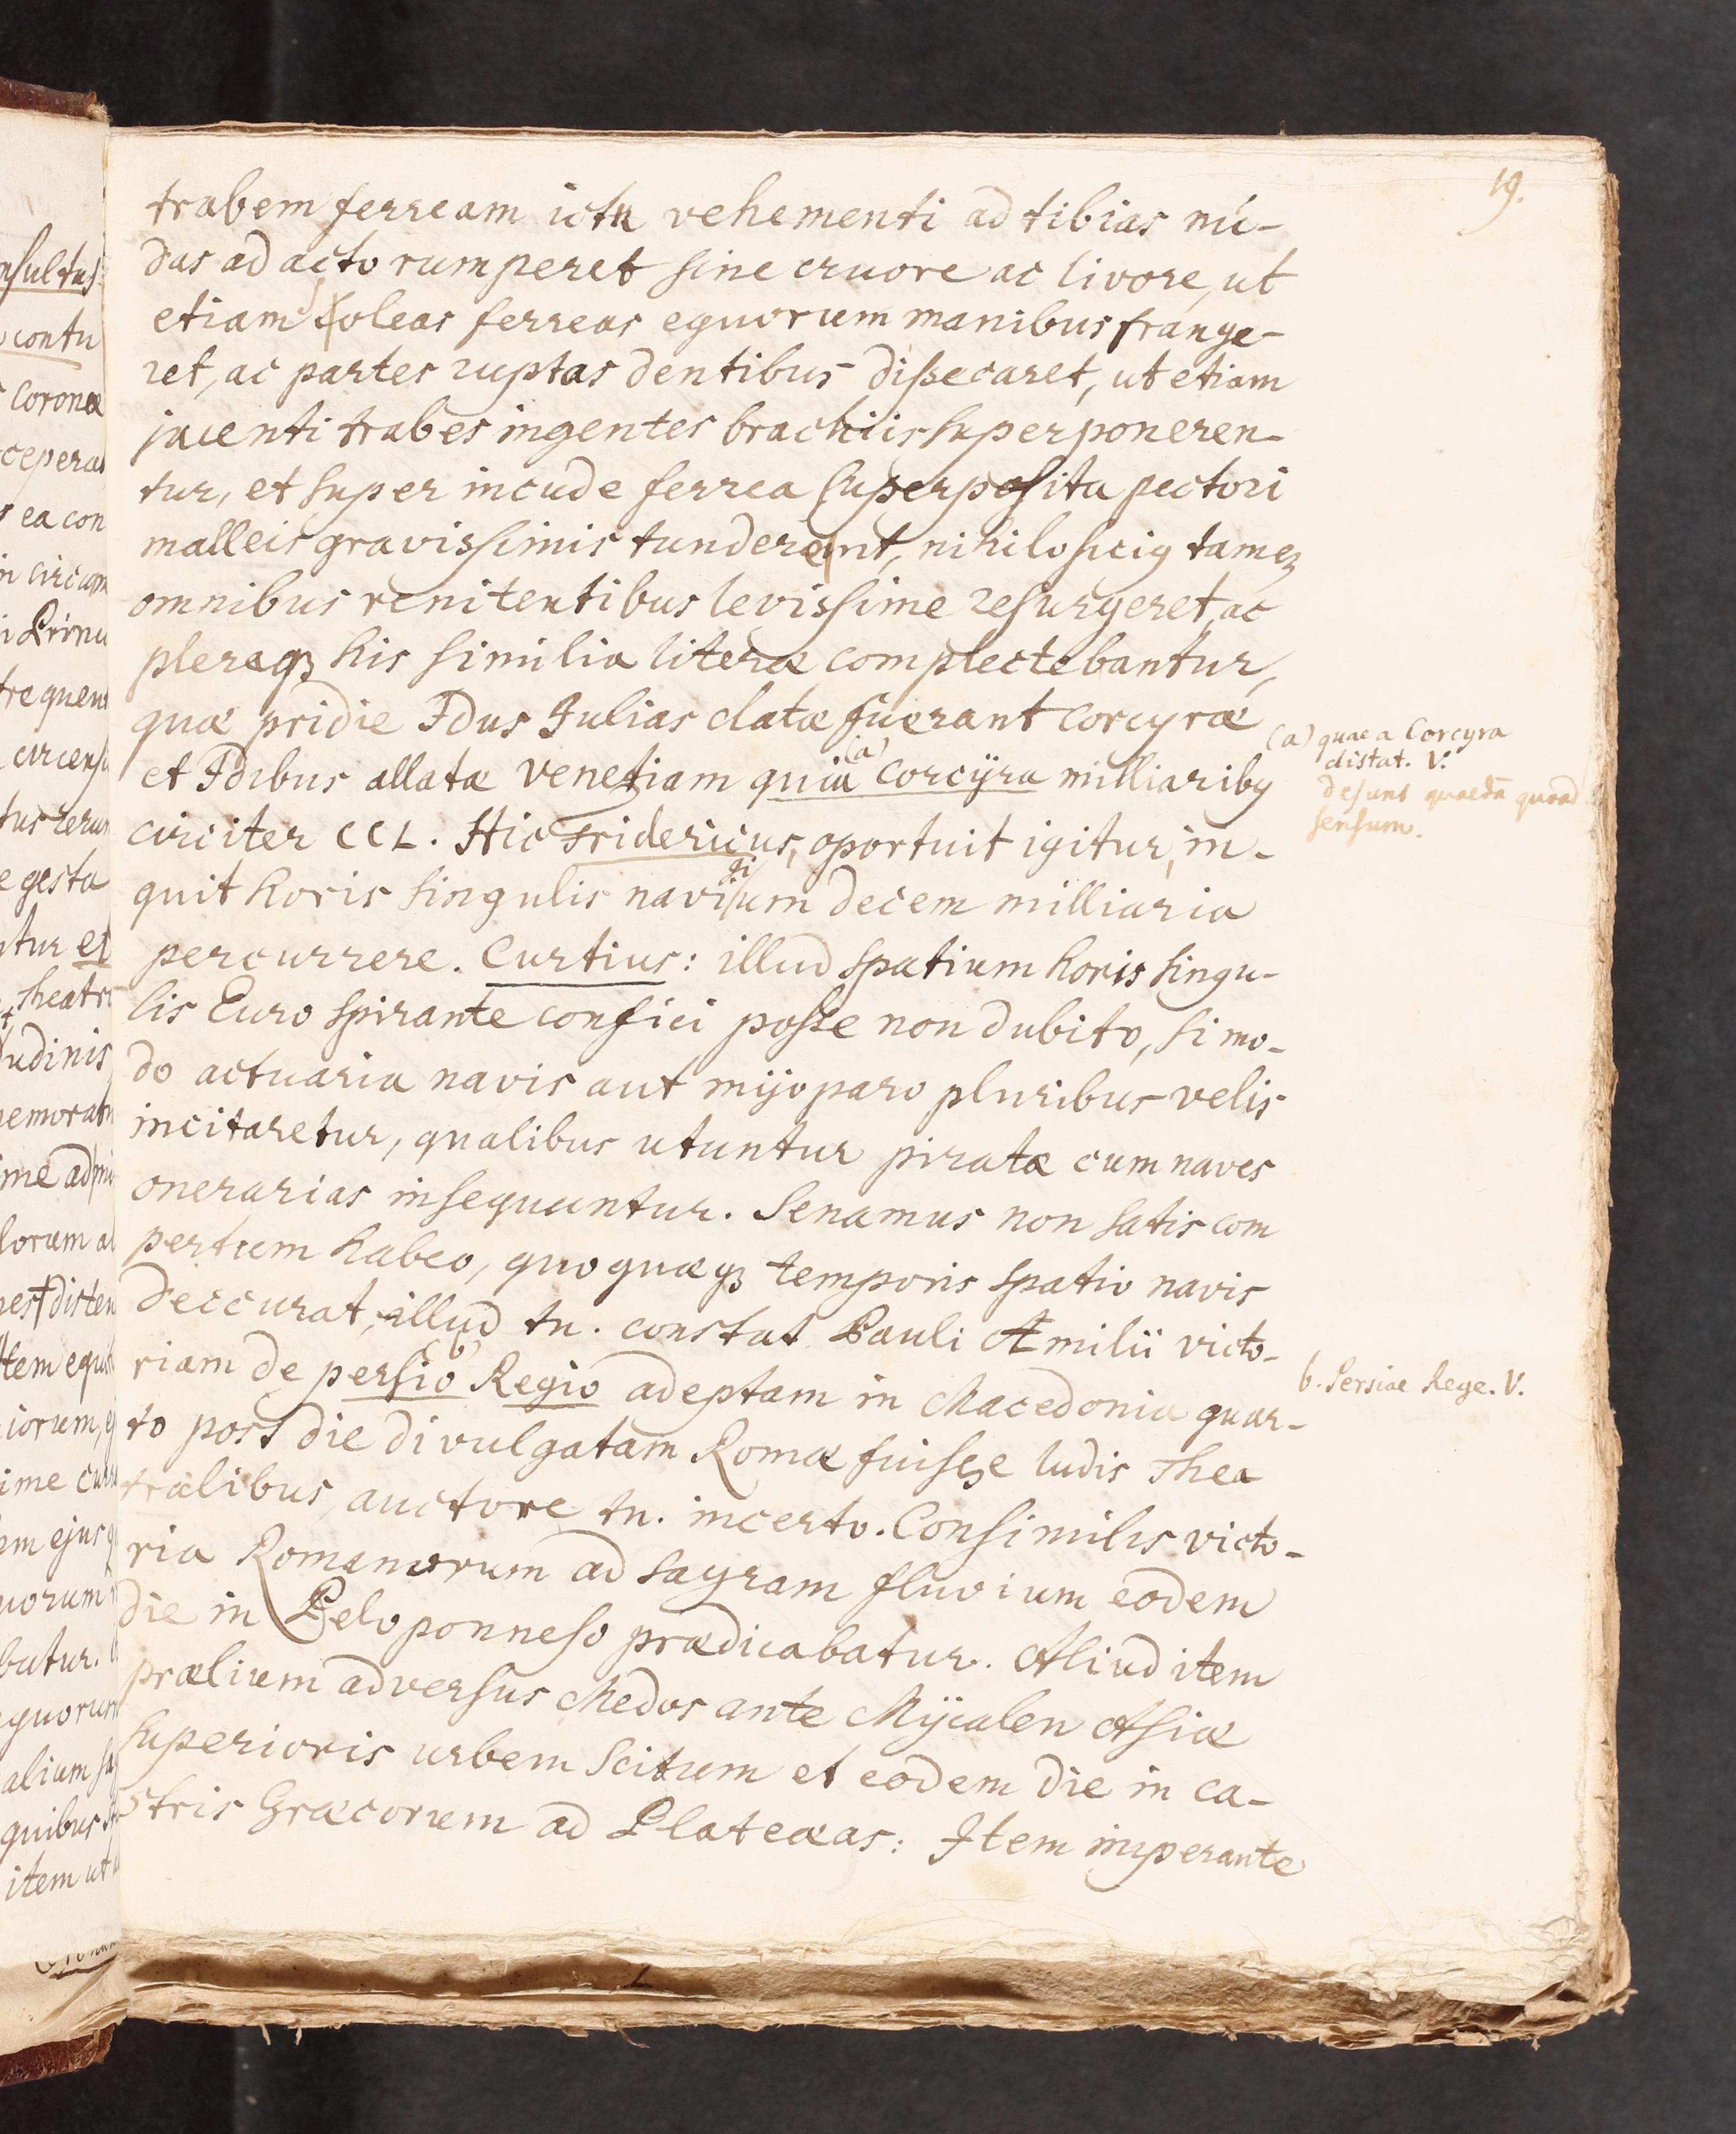 19.
trabem ferream ictu vehementi ad tibias nu-
das ad acto rumperet sine cruore ac livore, ut
etiam soleas ferreas equorum manibus frange-
ret, ac partes ruptas dentibus dissecaret, ut etiam
jacenti trabes ingentes brachiis superponeren-
tur, et super incude ferrea superposita pectori
malleis gravissimis tunderent, nihilo
omnibus renitentibus levissime resurgeret, ac
pleraqȝ his similia literæ complectebantur,
quæ pridie Idus Julias datæ fuerant Corcyræ
et Idibus allatæ venetiam quia (a) Corcÿra milliaribꝰ
circiter CCL. Hic Fridericus, oportuit igitur, in-
quit horis singulis navigium decem milliaria
percurrere. Curtius: illud spatium horis singu-
lis Euro spirante confici posse non dubito, si mo-
do actuaria navis aut mÿoparo pluribus velis
incitaretur, qualibus utuntur piratæ cum naves
onerarias insequuntur. Senamus non satis com
pertum habeo, quo quæqȝ temporis spatio navis
deccurat, illud tn. constat Pauli Æmilii victo-
riam de persio (b) Regio adeptam in Macedonia quar-
to post die divulgatam Romæ fuisse ludis Thea
tralibus, auctore tn. incerto. Consimilis victo-
ria Romanorum ad sagram fluvium eodem
die in Peloponneso prædicabatur. Aliud item
prælium adversus Medos ante Mÿcalen Asiæ
superioris urbem scitum et eodem die in ca-
stris Græcorum ad Plateæas: Item imperante
(a) quae a Corcyra
distat. V.
desunt quaedā quoad
sensum.
b. Persiae Rege. V.